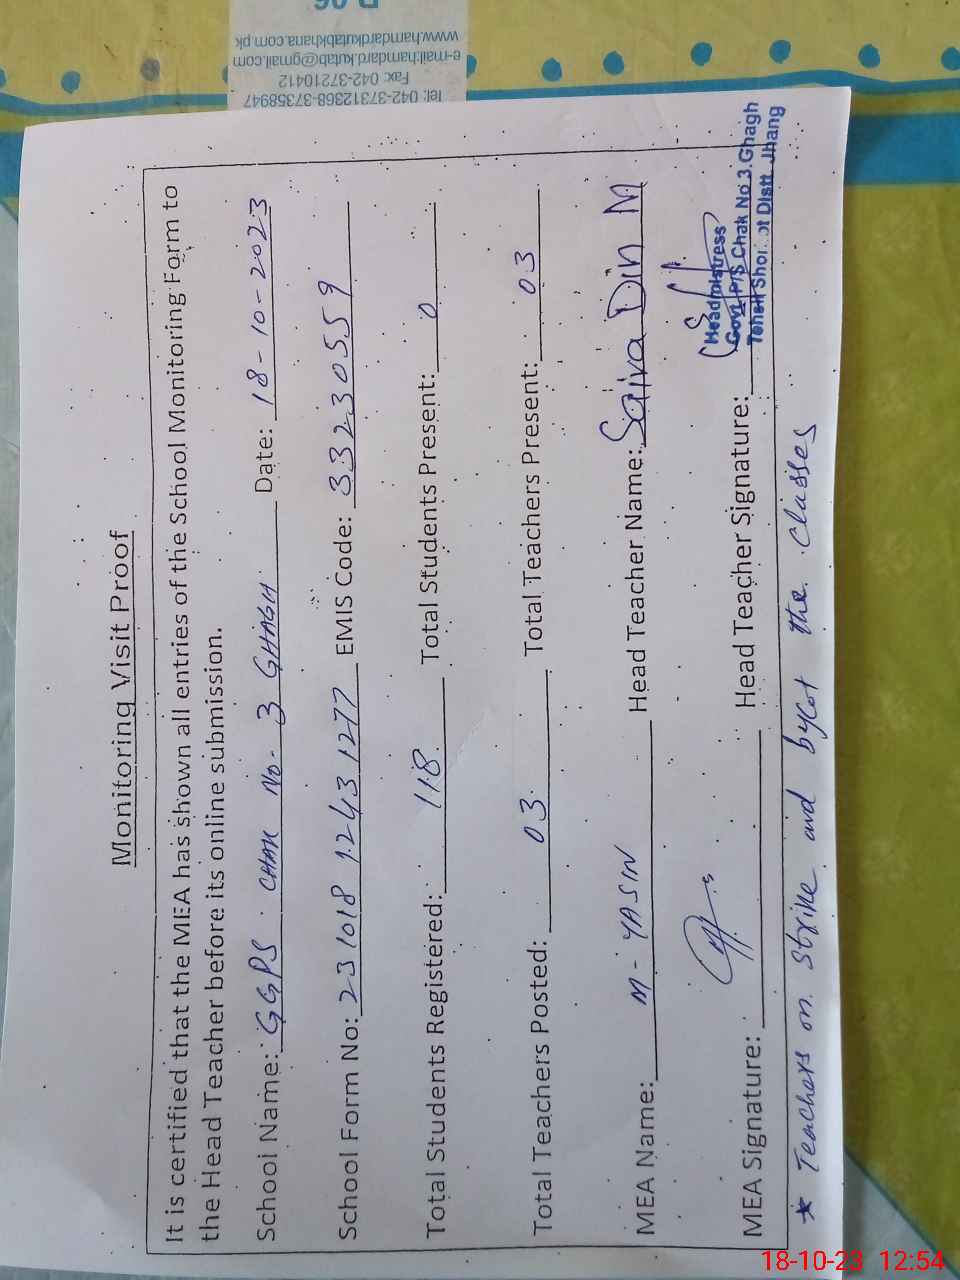 Monitoring Visit Proof
It is certified that the MEA has shown all entries of the School Monitoring Form to
the Head Teacher before its online submission.
School Name: GGPS CHAK No. 3 GHAGH Date: 18-10-2023
School Form No: 231018 1243 1277 EMIS Code: 33230559
Total Students Registered: 118 Total Students Present: 0
Total Teachers Posted: 03 Total Teachers Present: 03
MEA Name: M-YASIN Head Teacher Name: Saiva Din M
MEA Signature: Head Teacher Signature:
Headmistress
Govt P/S Chak No 3 Ghagh
Tehsil Distt Jhang
* Teachers on strike and bycot the classes
Tel: 042-37312368-37358947
Fax: 042-37210412
e-mail:hamdard.kutab@gmail.com
www.hamdardkutabkhana.com.pk
18-10-23 12:54